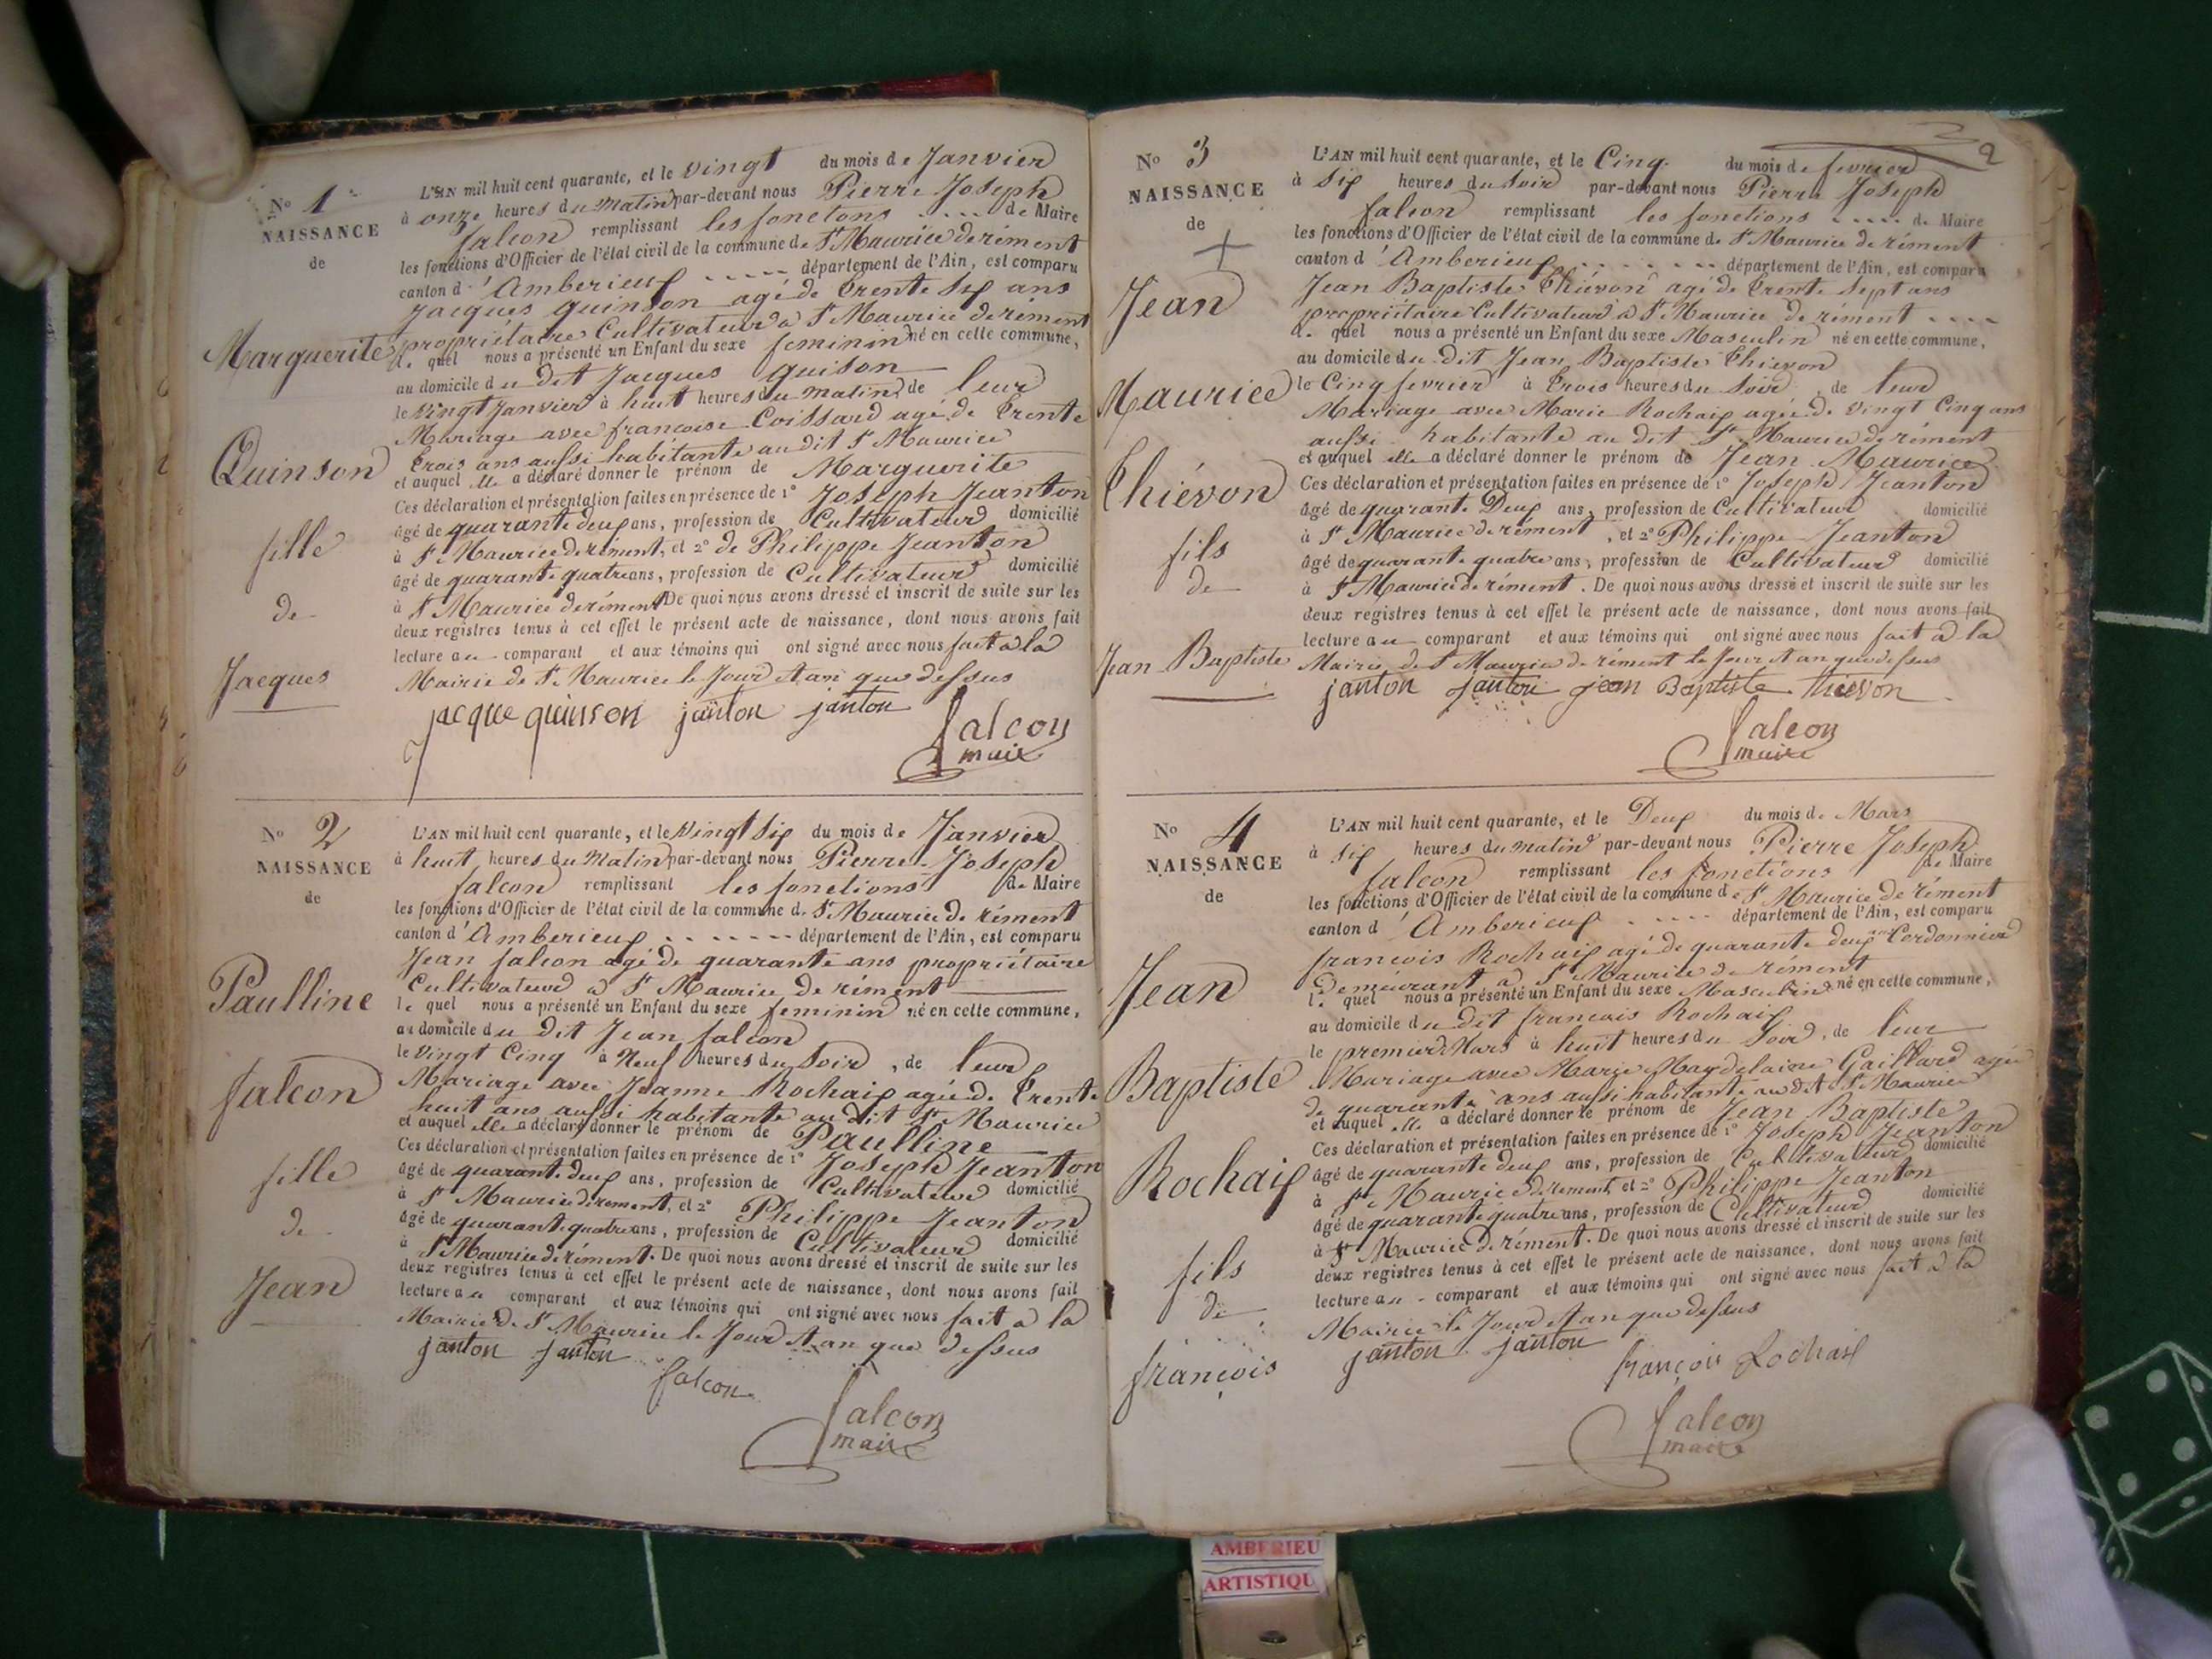 No 1
NAISSANCE
de
Marguerite
Quinson
fille
de
Jacques
L'AN mil huit cent quarante, et le vingt du mois de Janvier
à onze heures du Matin par-devant nous Pierre Joseph
falcon remplissant les fonctons de Maire
les fonctions d'Officier de l'état civil de la commune de St Maurice de rément
canton d'Amberieux département de l'Ain, est comparu
Jacques Quinson agé de trente six ans
propriétaire Cultivateur à St Maurice de rément
le quel nous a présenté un Enfant du sexe feminin né en cette commune,
au domicile du dit Jacques quison
le vingt Janvier à huit heures du matin, de leur
Mariage avec francoise Coissard agé de trente
trois ans aussi habitante au dit St Maurice
et auquel elle a déclaré donner le prénom de Marguerite
Ces déclaration et présentation faites en présence de 1° Joseph Jeanton
âgé de quarante deux ans, profession de Cultivateur domicilié
à St Maurice de rément, et 2° de Philippe Jeanton
âgé de quarante quatre ans, profession de Cultivateur domicilié
à St Maurice de rément De quoi nous avons dressé et inscrit de suite sur les
deux registres tenus à cet effet le présent acte de naissance, dont nous avons fait
lecture au comparant et aux témoins qui ont signé avec nous fait à la
Mairie de St Maurice le Jour et an que dessus
jacque quinson janton janton
falcon
maire
No 2
NAISSANCE
de
Paulline
falcon
fille
de
Jean
L'AN mil huit cent quarante, et le vingt six du mois de Janvier
à huit heures du Matin par-devant nous Pierre Joseph
falcon remplissant les fonctions de Maire
les fonctions d'Officier de l'état civil de la commune de St Maurice de rément
canton d'Amberieux département de l'Ain, est comparu
Jean falcon agé de quarante ans propriétaire
Cultivateur à St Maurice de rément
le quel nous a présenté un Enfant du sexe feminin né en cette commune,
au domicile du dit Jean falcon
le vingt Cinq à Neuf heures du Soir, de leur
Mariage avec Jeanne Rochaix agée de trente
huit ans aussi habitante au dit St Maurice
et auquel elle a déclaré donner le prénom de Paulline
Ces déclaration et présentation faites en présence de 1° Joseph Jeanton
âgé de quarante deux ans, profession de Cultivateur domicilié
à St Maurice de rement, et 2° Philippe Jeanton
âgé de quarante quatre ans, profession de Cultivateur domicilié
à St Maurice de rément. De quoi nous avons dressé et inscrit de suite sur les
deux registres tenus à cet effet le présent acte de naissance, dont nous avons fait
lecture au comparant et aux témoins qui ont signé avec nous fait à la
Mairie de St Maurice le Jour et an que dessus
janton janton
falcon
falcon
maire
2
No 3
NAISSANCE
de
Jean
Maurice
Thiévon
fils
de
Jean Baptiste
L'AN mil huit cent quarante, et le Cinq du mois de fevrier
à Six heures du Soir par-devant nous Pierre Joseph
falcon remplissant les fonctions de Maire
les fonctions d'Officier de l'état civil de la commune de St Maurice de rément
canton d'Amberieux département de l'Ain, est comparu
Jean Baptiste Thiévon agé de trente Sept ans
propriétaire Cultivateur à St Maurice de rément
le quel nous a présenté un Enfant du sexe Masculin né en cette commune,
au domicile du dit Jean Baptiste Thievon
le Cinq fevrier à trois heures du Soir, de leur
Mariage avec Marie Rochaix agée de vingt Cinq ans
aussi habitante au dit St Maurice de rément
et auquel elle a déclaré donner le prénom de Jean Maurice
Ces déclaration et présentation faites en présence de 1° Joseph Jeanton
âgé de quarante Deux ans, profession de Cultivateur domicilié
à St Maurice de rément, et 2° Philippe Jeanton
âgé de quarante quatre ans, profession de Cultivateur domicilié
à St Maurice de rément. De quoi nous avons dressé et inscrit de suite sur les
deux registres tenus à cet effet le présent acte de naissance, dont nous avons fait
lecture au comparant et aux témoins qui ont signé avec nous fait à la
Mairie de St Maurice de rément le Jour et an que dessus
janton janton jean Baptiste thievon
falcon
maire
No 4
NAISSANCE
de
Jean
Baptiste
Rochaix
fils
de
françois
L'AN mil huit cent quarante, et le Deux du mois de Mars
à six heures du matin par-devant nous Pierre Joseph
falcon remplissant les fonctions de Maire
les fonctions d'Officier de l'état civil de la commune de St Maurice de rément
canton d'Amberieux département de l'Ain, est comparu
francois Rochaix agé de quarante deux ans Cordonnier
demeurant à St Maurice de rément
le quel nous a présenté un Enfant du sexe Masculin né en cette commune,
au domicile du dit francois Rochaix
le premier Mars à huit heures du Soir, de leur
Mariage avec Marie Magdelaine Gaillard agée
de quarante ans aussi habitante au dit St Maurice
et auquel elle a déclaré donner le prénom de Jean Baptiste
Ces déclaration et présentation faites en présence de 1° Joseph Jeanton
âgé de quarante deux ans, profession de Cultivateur domicilié
à St Maurice de rement, et 2° Philippe Jeanton
âgé de quarante quatre ans, profession de Cultivateur domicilié
à St Maurice de rément. De quoi nous avons dressé et inscrit de suite sur les
deux registres tenus à cet effet le présent acte de naissance, dont nous avons fait
lecture au comparant et aux témoins qui ont signé avec nous fait à la
Mairie le Jour et an que dessus
janton janton françois Rochaix
falcon
maire
AMBERIEU
ARTISTIQU